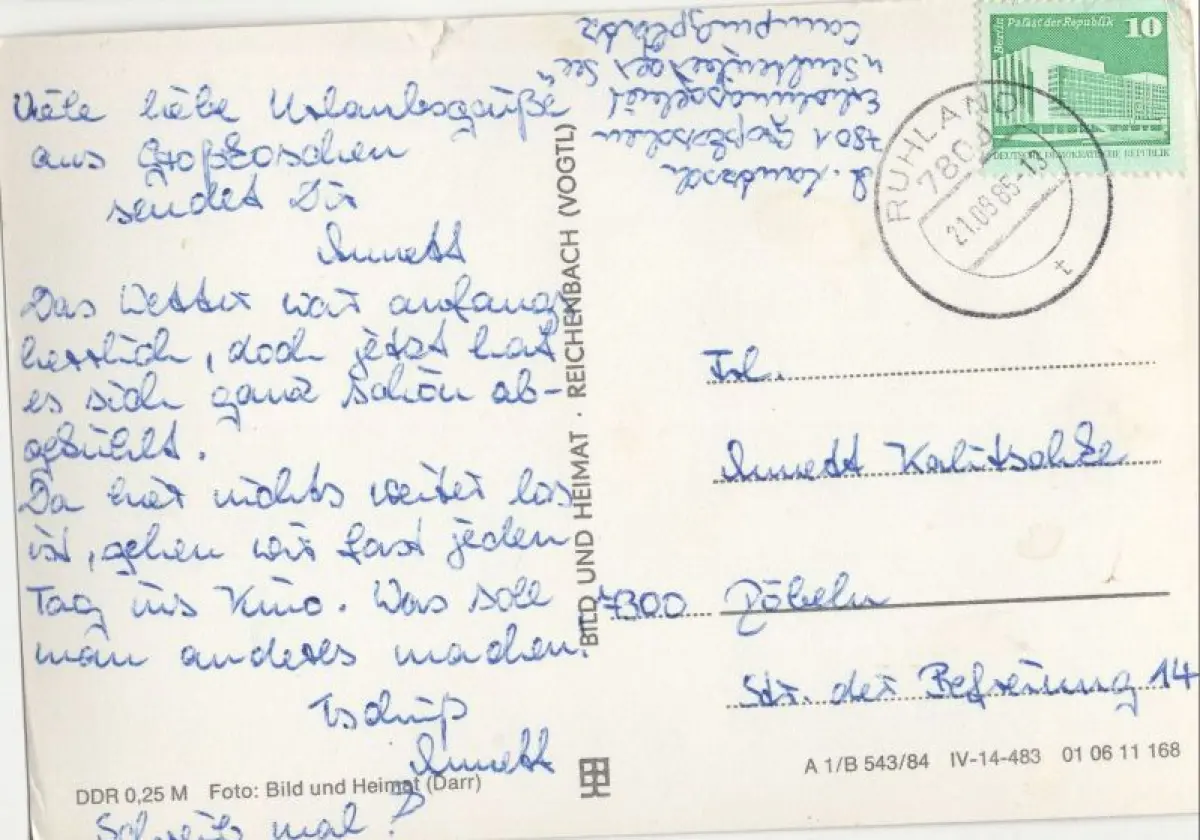 Viele liebe Urlaubsgrüße
aus Großkoschen
sendet Dir
Annett
Das Wetter war anfangs
herrlich, doch jetzt hat
es sich ganz schön ab-
gekühlt.
Da hier nichts weiter los
ist, gehen wir fast jeden
Tag ins Kino. Was soll
man anderes machen.
Tschüß
Annett
Schreib mal!
DDR 0,25 M Foto: Bild und Heimat (Darr)
BILD UND HEIMAT · REICHENBACH (VOGTL)
A.
7801 Großkoschen
Erholungsgebiet
"Senftenberger See"
Campingplatz
Berlin Palast der Republik 10
DEUTSCHE DEMOKRATISCHE REPUBLIK
RUHLAND
7804
21.09.85-13
t
Frl.
Annett Kalitschke
7300 Döbeln
Str. der Befreiung 14
A 1/B 543/84 IV-14-483 01 06 11 168